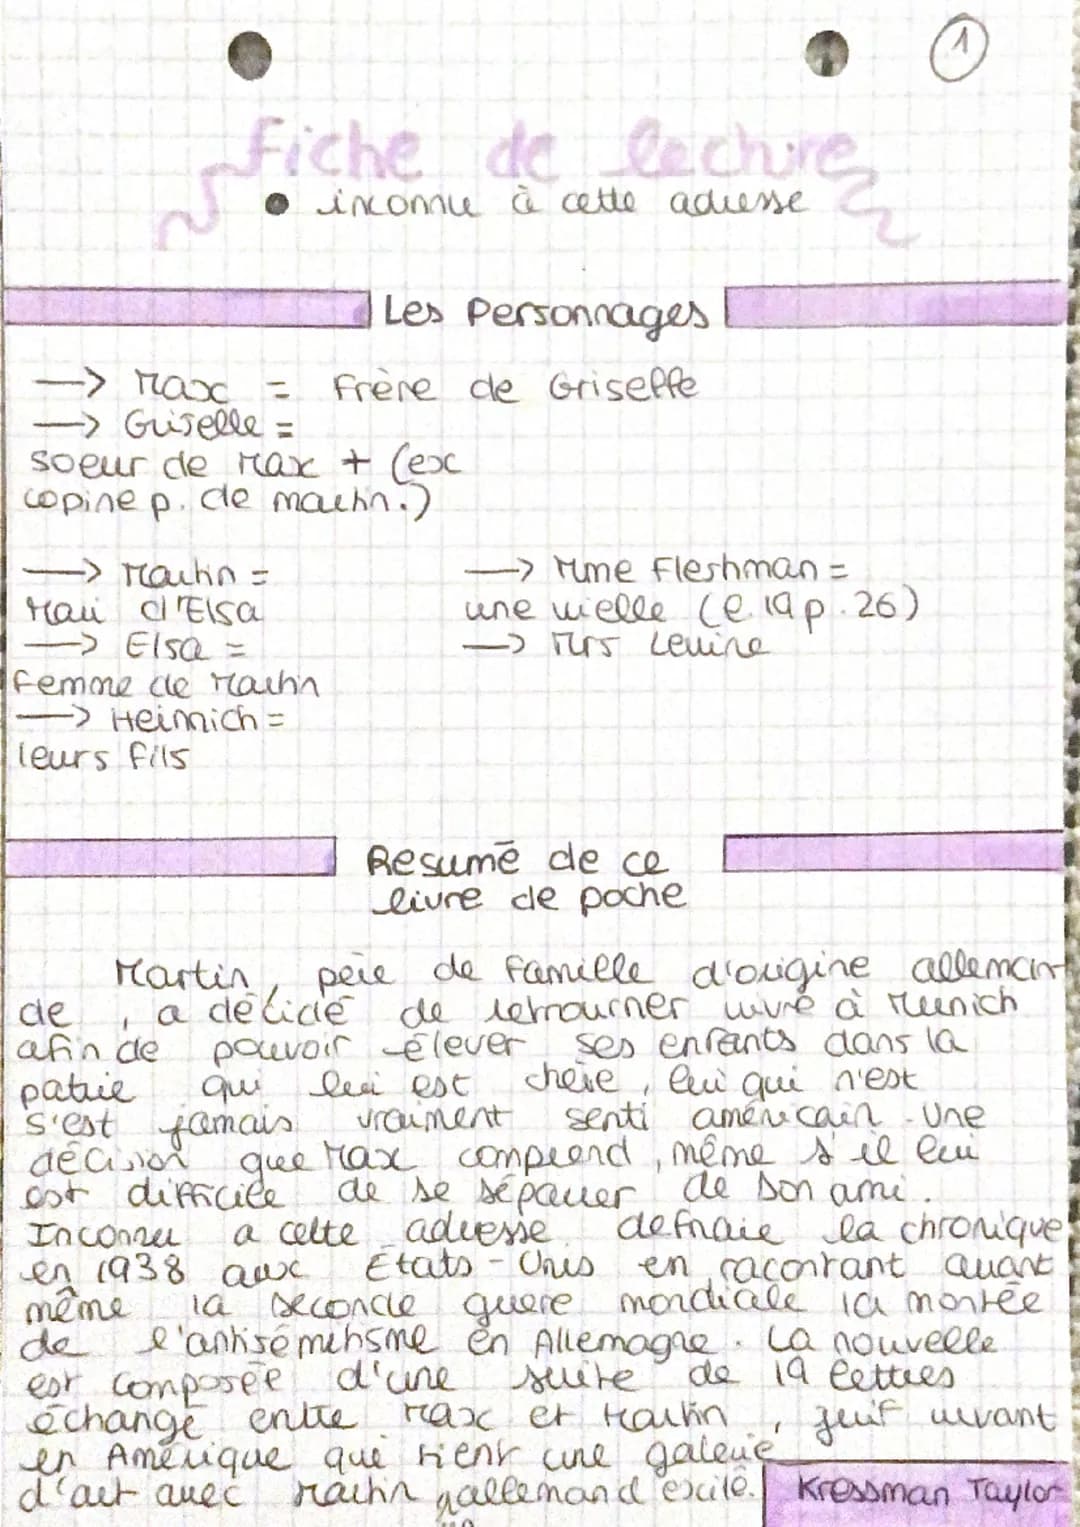 1
Fiche de lecture
• inconnu à cette adresse
Les Personnages
—> Max = Frère de Griselle
—> Griselle =
soeur de Max + (ex
copine p. de martin.)
—> Martin =
Mari d'Elsa
—> Elsa =
Femme de Martin
—> Heinrich =
leurs fils
—> Mme Fleshman =
une vielle (l. 19 p. 26)
—> Mrs Levine
Resumé de ce
livre de poche
Martin, père de famille d'origine alleman
de, a décidé de retrourner vivre à Munich
afin de pouvoir élever ses enfants dans la
patrie qui lui est chère, lui qui n'est
s'est jamais vraiment senti américain. Une
décision que Max comprend, même s'il lui
est difficile de se séparer de son ami.
Inconnu a cette adresse defraie la chronique
en 1938 aux États-Unis en racontant avant
même la seconde guere mondiale la montée
de l'antisémitisme en Allemagne. La nouvelle
est composée d'une suite de 19 lettres
échangé entre Max et Martin, juif vivant
en Amérique qui tient une galerie
d'art avec Martin, allemand exilé.
Kressman Taylor